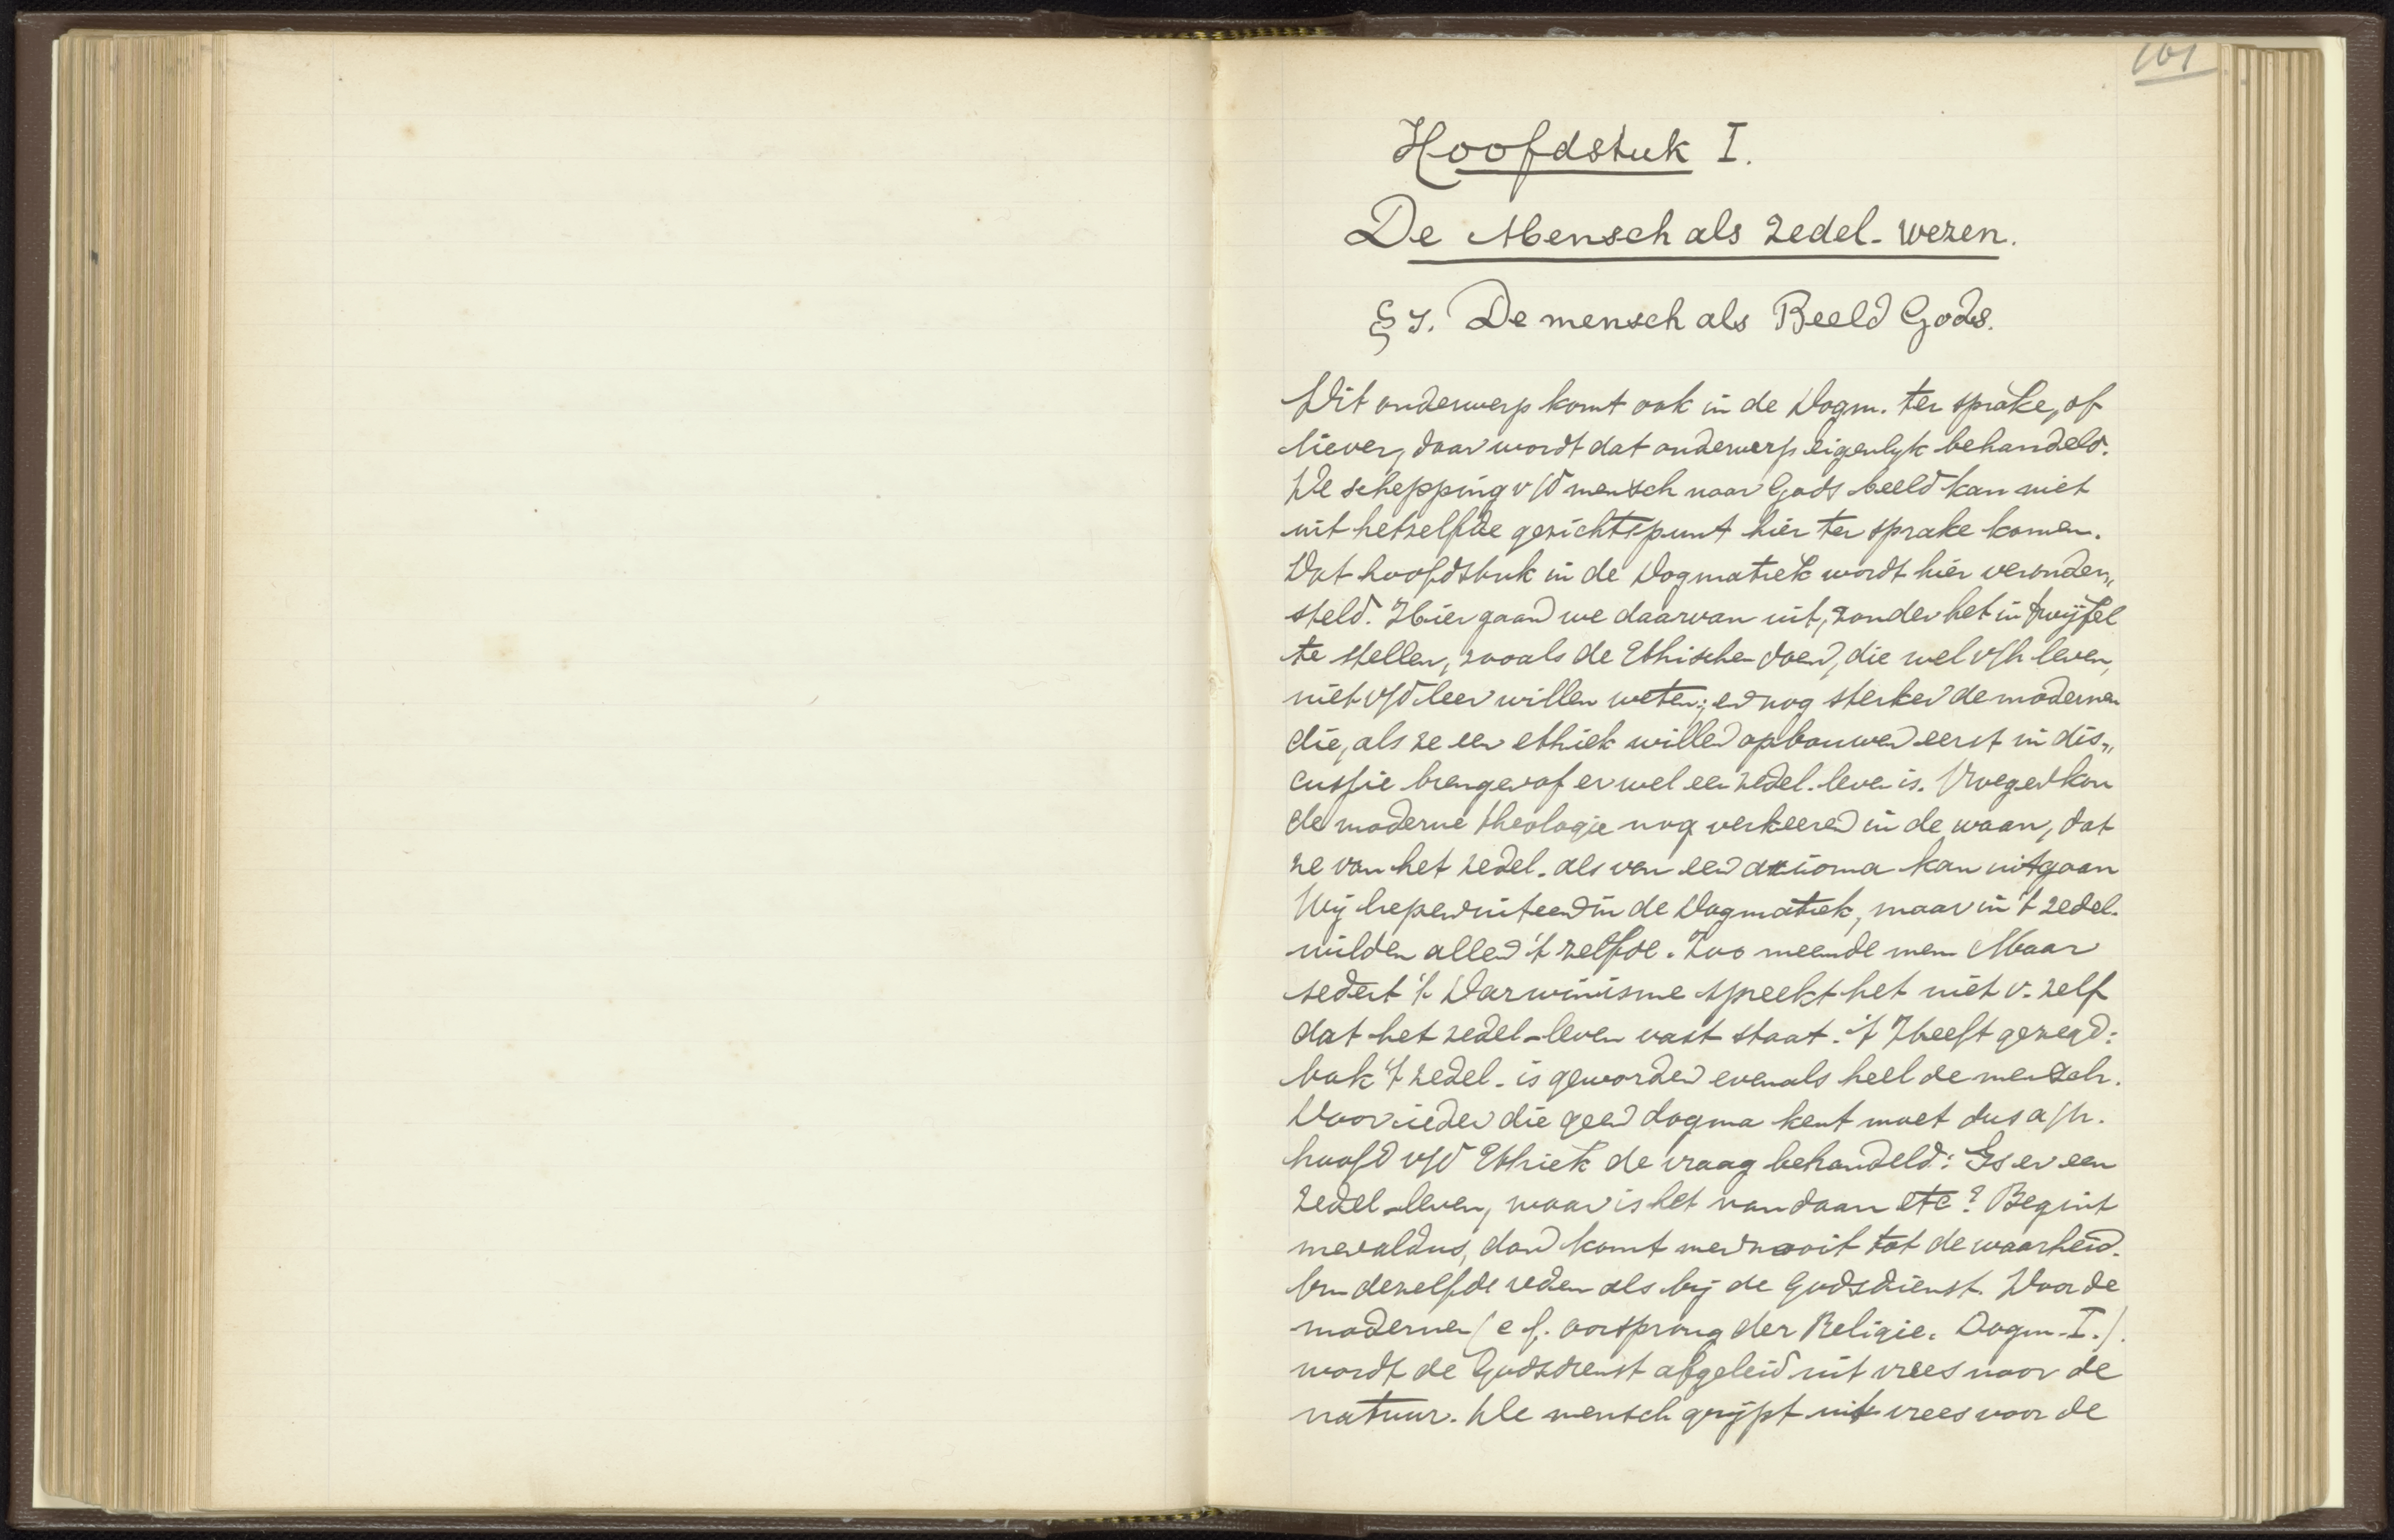 101
Hoofdstuk I.
De Mensch als zedel. wezen.
§ 1. De mensch als Beeld Gods.
Dit onderwerp komt ook in de Dogm. ter sprake, of
liever, daar wordt dat onderwerp eigenlyk behandeld.
De schepping v/d mensch naar Gods beeld kan niet
uit hetzelfde gezichtspunt hier ter sprake komen.
Dat hoofdstuk in de Dogmatiek wordt hier veronder„
steld. Hier gaan we daarvan uit, zonder het in twijfel
te stellen, zooals de Ethischen doen, die wel v/h leven,
niet v/d leer willen weten; en nog sterker de modernen
die, als ze een ethiek willen opbouwen eerst in dis„
cussie brengen of er wel een zedel. leven is. Vroeger kon
de moderne theologie nog verkeeren in de waan, dat
ze van het zedel. als van een axioma kan uitgaan
Wij liepen uiteen in de Dogmatiek, maar in 't zedel.
wilden allen 't zelfde. Zoo meende men Maar
sedert 't Darwinisme spreekt het niet v. zelf
dat het zedel-leven vast staat. 't Heeft gezegd:
ook 't zedel. is geworden evenals heel de mensch.
Voor ieder die geen dogma kent moet dus a/h.
hoofd v/d Ethiek de vraag behandeld: Is er een
zedel-leven, waar is het vandaan etc? Begint
men aldus, dan komt men nooit tot de waarheid.
Om dezelfde reden als bij de godsdienst. Voor de
modernen (cf. oorsprong der Religie. Dogm. I.).
wordt de Godsdienst afgeleid uit vrees voor de
natuur. De mensch grijpt uit vrees voor de